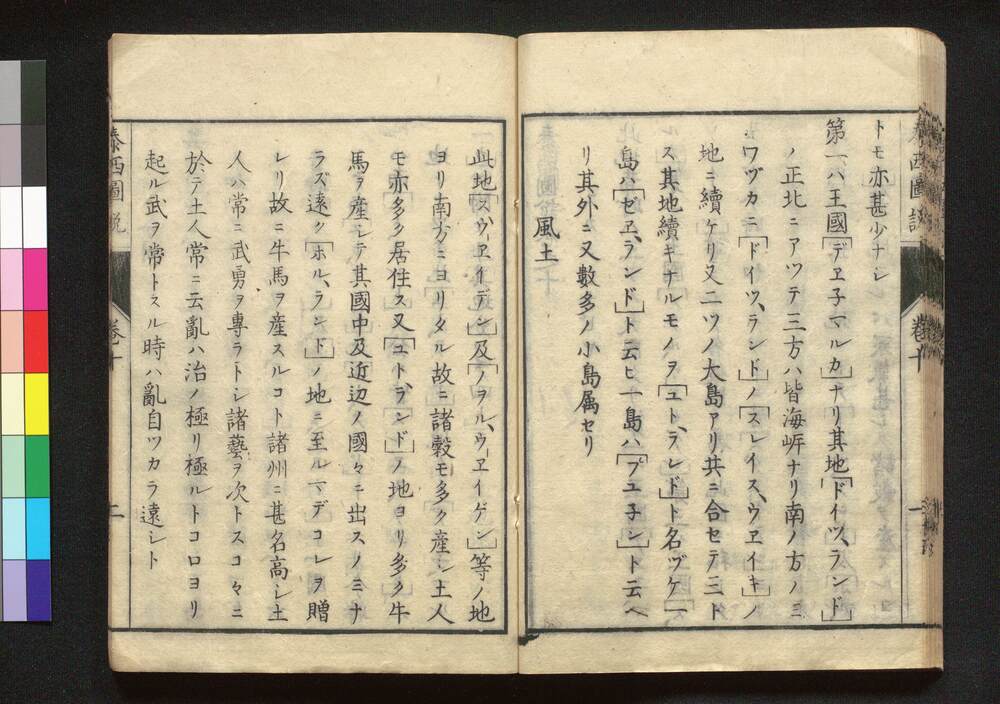 泰西圖説
卷十
一
トモ亦甚少ナシ
第一ハ王國「デヱ子マルカ」ナリ其地「ドイツ、ランド」
ノ正北ニアツテ三方ハ皆海岸ナリ南ノ方ノミ
ワヅカニ「ドイツ、ランド」ノ「スレイス、ウヱイキ」ノ
地ニ續ケリ又二ツノ大島アリ共ニ合セテ三ト
ス其地續キナルモノヲ「ユト、ランド」ト名ヅケ「一
島ハ「ゼヱ、ランド」ト云ヒ一島ハ「プユ子ン」ト云ヘ
リ其外ニ又數多ノ小島属セリ
風土
此地「スヴヱイデン」及「ノヲル、ウヱイゲン」等ノ地
ヨリ南方ニヨリタル故ニ諸穀モ多ク産シ土人
モ亦多ク居住ス又「ユト、ランド」ノ地ヨリ多ク牛
馬ヲ産シテ其國中及近辺ノ國々ニ出スノミナ
ラズ遠ク「ホル、ランド」ノ地ニ至ルマデコレヲ贈
レリ故ニ牛馬ヲ産スルコト諸州ニ甚名高シ土
人ハ常ニ武勇ヲ專ラトシ諸藝ヲ次トスコヽニ
於テ土人常ニ云亂ハ治ノ極リ極ルトコロヨリ
起ル武ヲ常トスル時ハ亂自ツカラ遠シト
泰西圖説
卷十
二